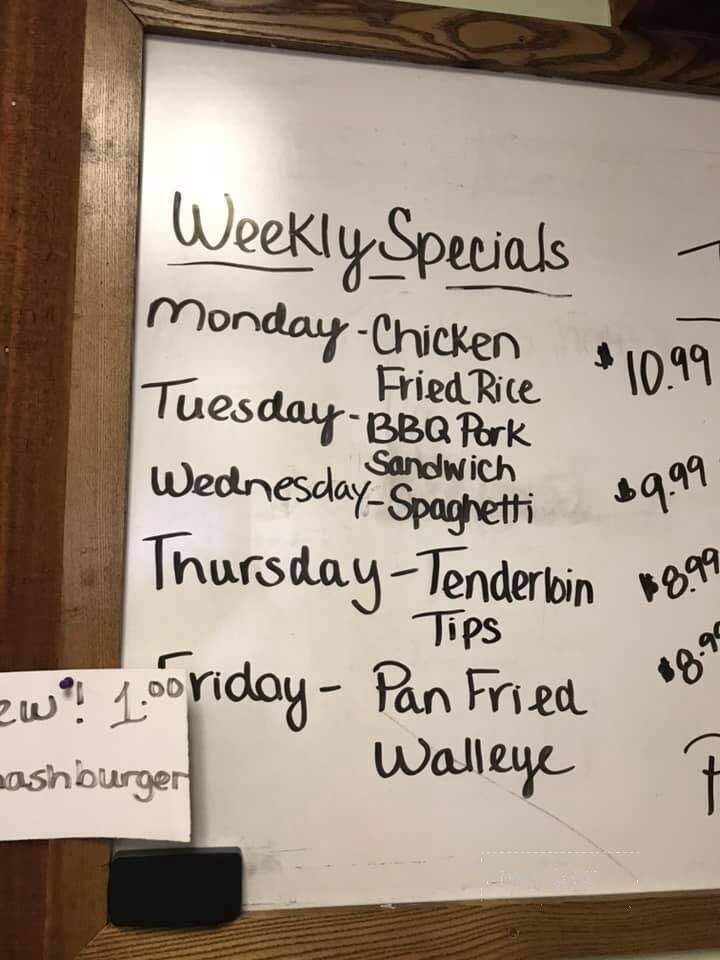 Weekly Specials
Monday - Chicken
Fried Rice
$10.99
Tuesday - BBQ Pork
Sandwich
Wednesday - Spaghetti
$9.99
Thursday - Tenderloin
Tips
$8.99
Friday - Pan Fried
Walleye
$8.99
ew! 1.00
ashburger